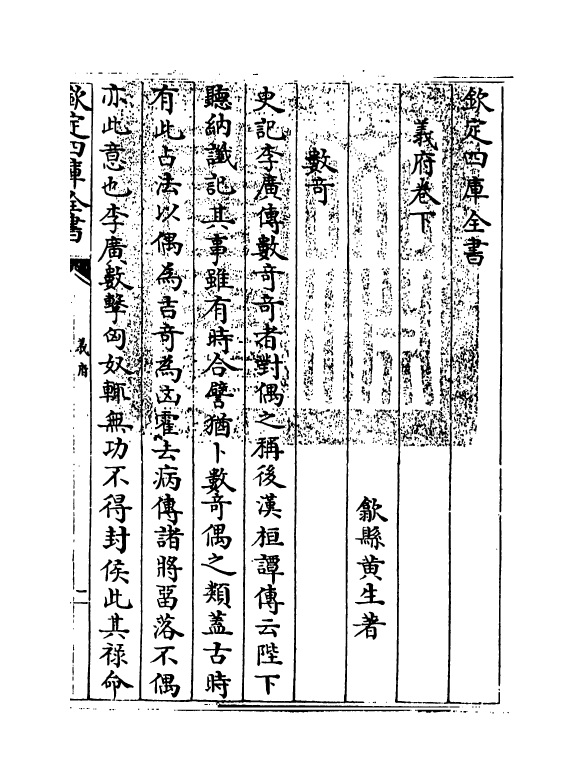 欽定四庫全書
義府卷下
歙縣黄生著
數奇
史記李廣傳數奇奇者對偶之稱後漢桓譚傳云陛下
聽納讖記其事雖有時合譬猶卜數奇偶之類蓋古時
有此占法以偶為吉奇為凶霍去病傳諸將留落不偶
亦此意也李廣數擊匈奴輒無功不得封侯此其祿命
欽定四庫全書
義府
二